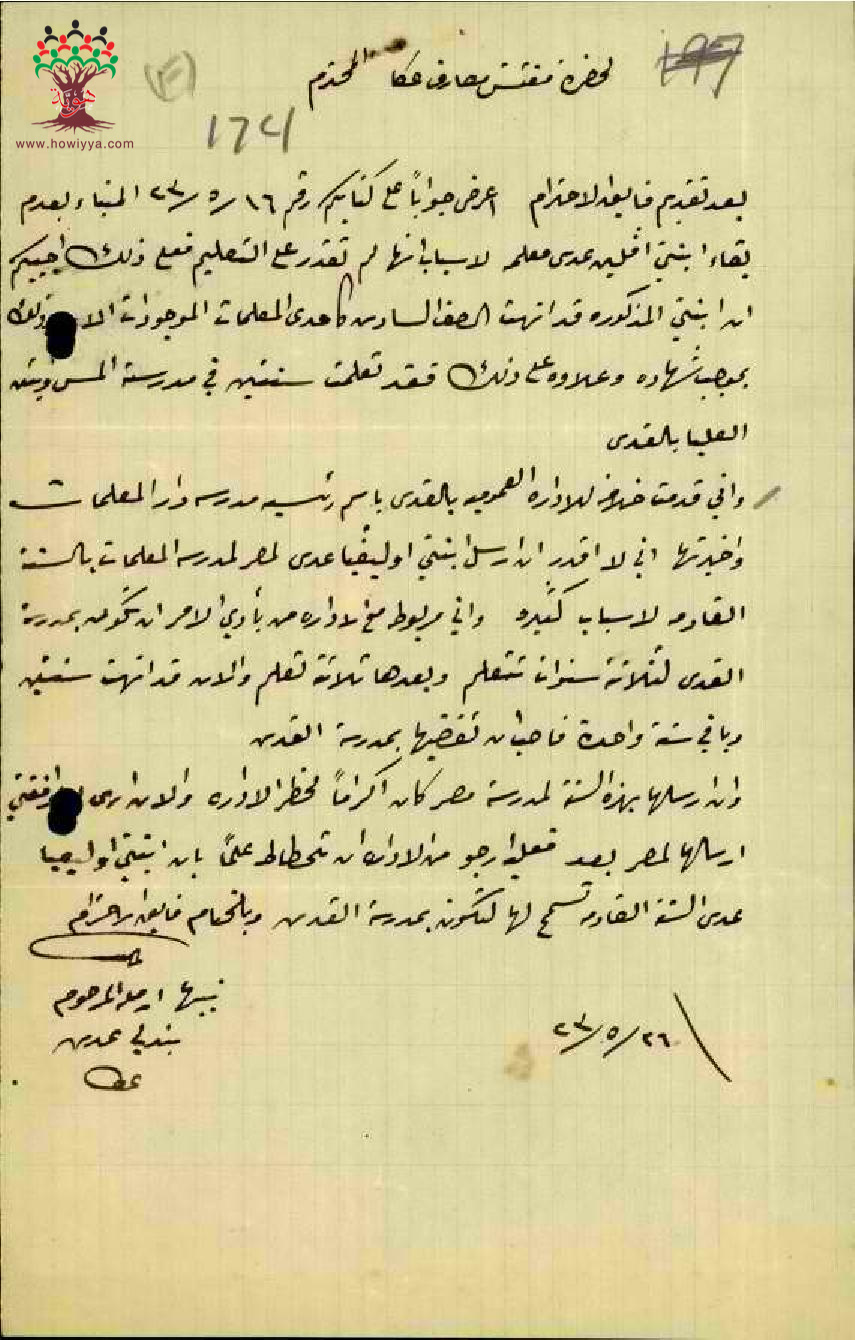 لحضرة مفتش معارف عكا المحترم
١٩٦
١٧٤
هوية
www.howiyya.com
بعد تقديم فايق الاحترام اعرض جواباً على كتابكم رقم ١٦/٥/٢٣ المنباء بعدم
بقاء ابنتي افلين عدى معلمه لاسباب انها لم تقدر على التعليم فعلى ذلك اجيبكم
ان ابنتي المذكوره قد انهت الصف السادس كاحدى المعلمات الموجودات الان وذلك
بموجب شهاده وعلاوه على ذلك فقد تعلمت سنتين في مدرسة المس
العليا بالقدس
واني قدمت خلافه للاداره العموميه بالقدس باسم رئيسه مدرسه دار المعلمات
واخبرتها اني لا اقدر ان ارسل ابنتي اوليفيا عدى لمصر لمدرسه المعلمات بالسنة
القادمه لاسباب كثيره واني مربوطه مع الاداره من بأدي الامر ان تكون بمدرسة
القدس لثلاثة سنوات تتعلم وبعدها ثلاثة تعلم والان قد انهت سنتين
وباقي سنة واحدة فاحب ان تقضيها بمدرسة القدس
وان ارسلها بهذه السنة لمدرسة مصر كان اكراماً لخاطر الاداره والان ارى
ارسالها لمصر بعد فعليه ارجو من الاداره ان تحطاط علماً بان ابنتي اوليفيا
عدى السنة القادمه تسمح لها لتكون بمدرسة القدس وبالختام فايق الاحترام
نبيها ارملة المرحوم
بندلي عدى
عكا
٢٦/٥/٢٣